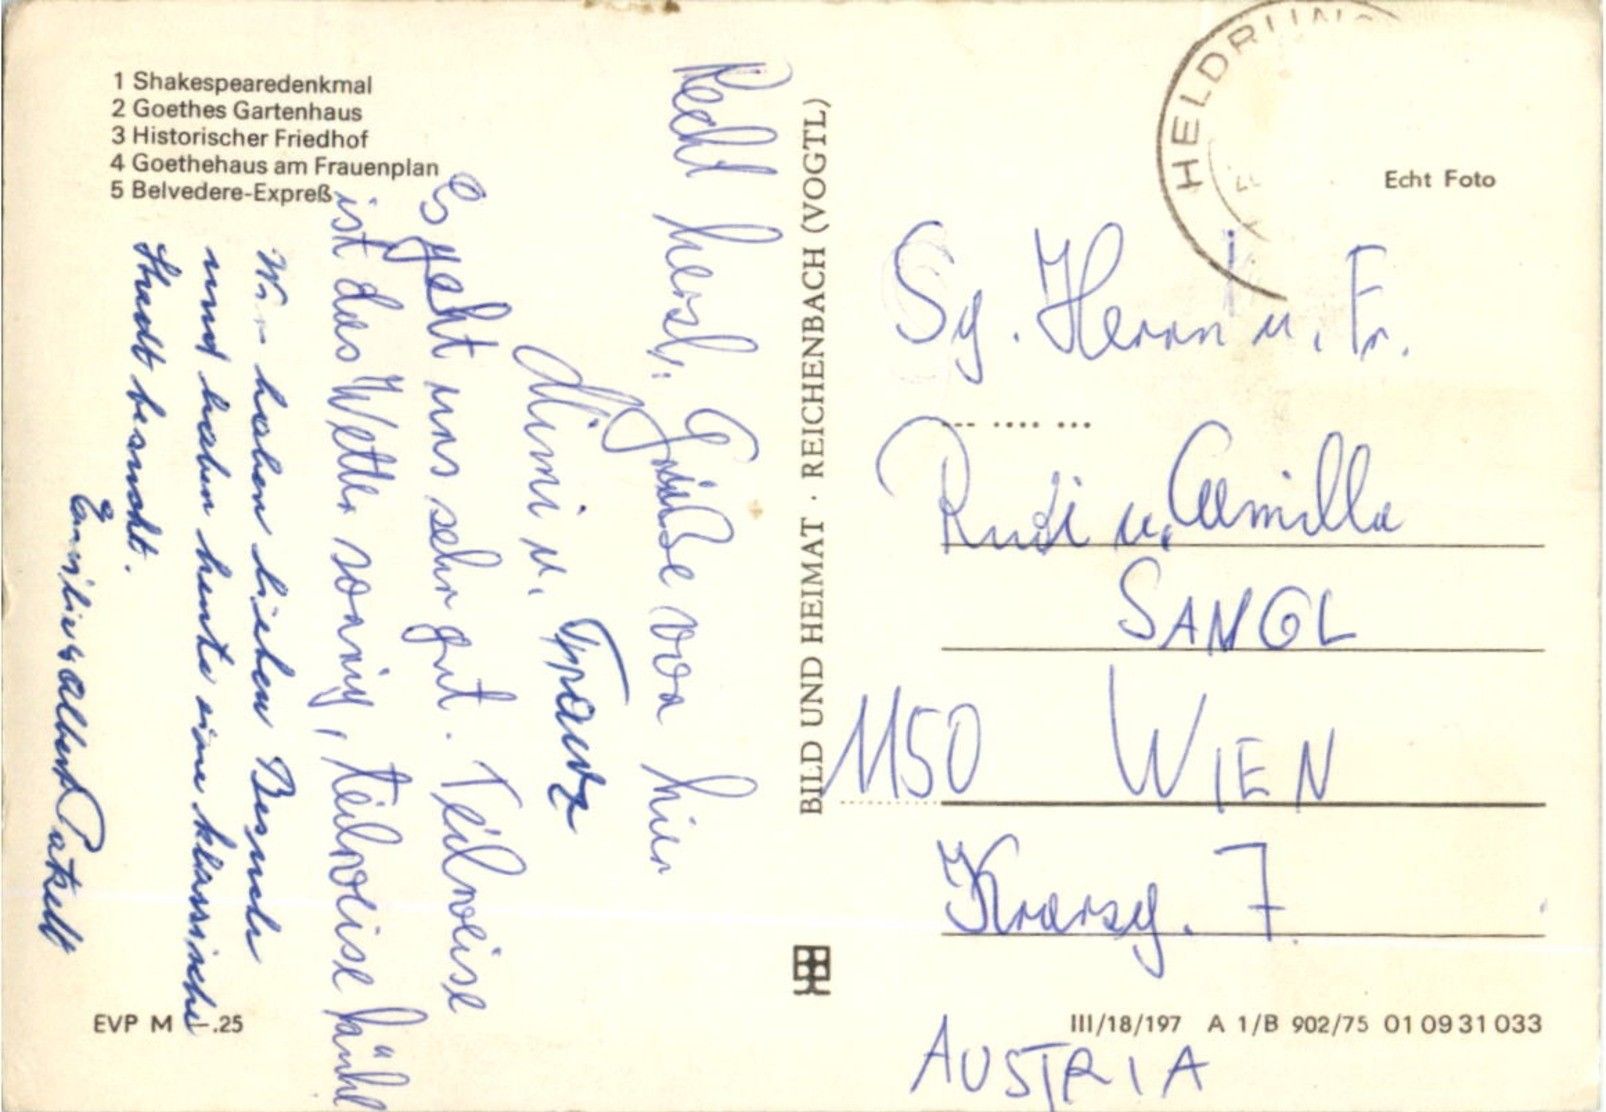 1 Shakespearedenkmal
2 Goethes Gartenhaus
3 Historischer Friedhof
4 Goethehaus am Frauenplan
5 Belvedere-Expreß
Recht herzl. Grüße von hier
Mimi u. Franz
Es geht uns sehr gut. Teilweise
ist das Wetter sonnig, teilweise kühl
Wir haben lieben Besuch
und haben heute eine klassische
Stadt besucht.
Emilie & Albert Patzelt
EVP M -.25
BILD UND HEIMAT · REICHENBACH (VOGTL)
HELDRUNG
Echt Foto
Sg. Herrn u. Fr.
Rudi u. Camilla
SANGL
1150 WIEN
7
AUSTRIA
III/18/197 A 1/B 902/75 01 09 31 033